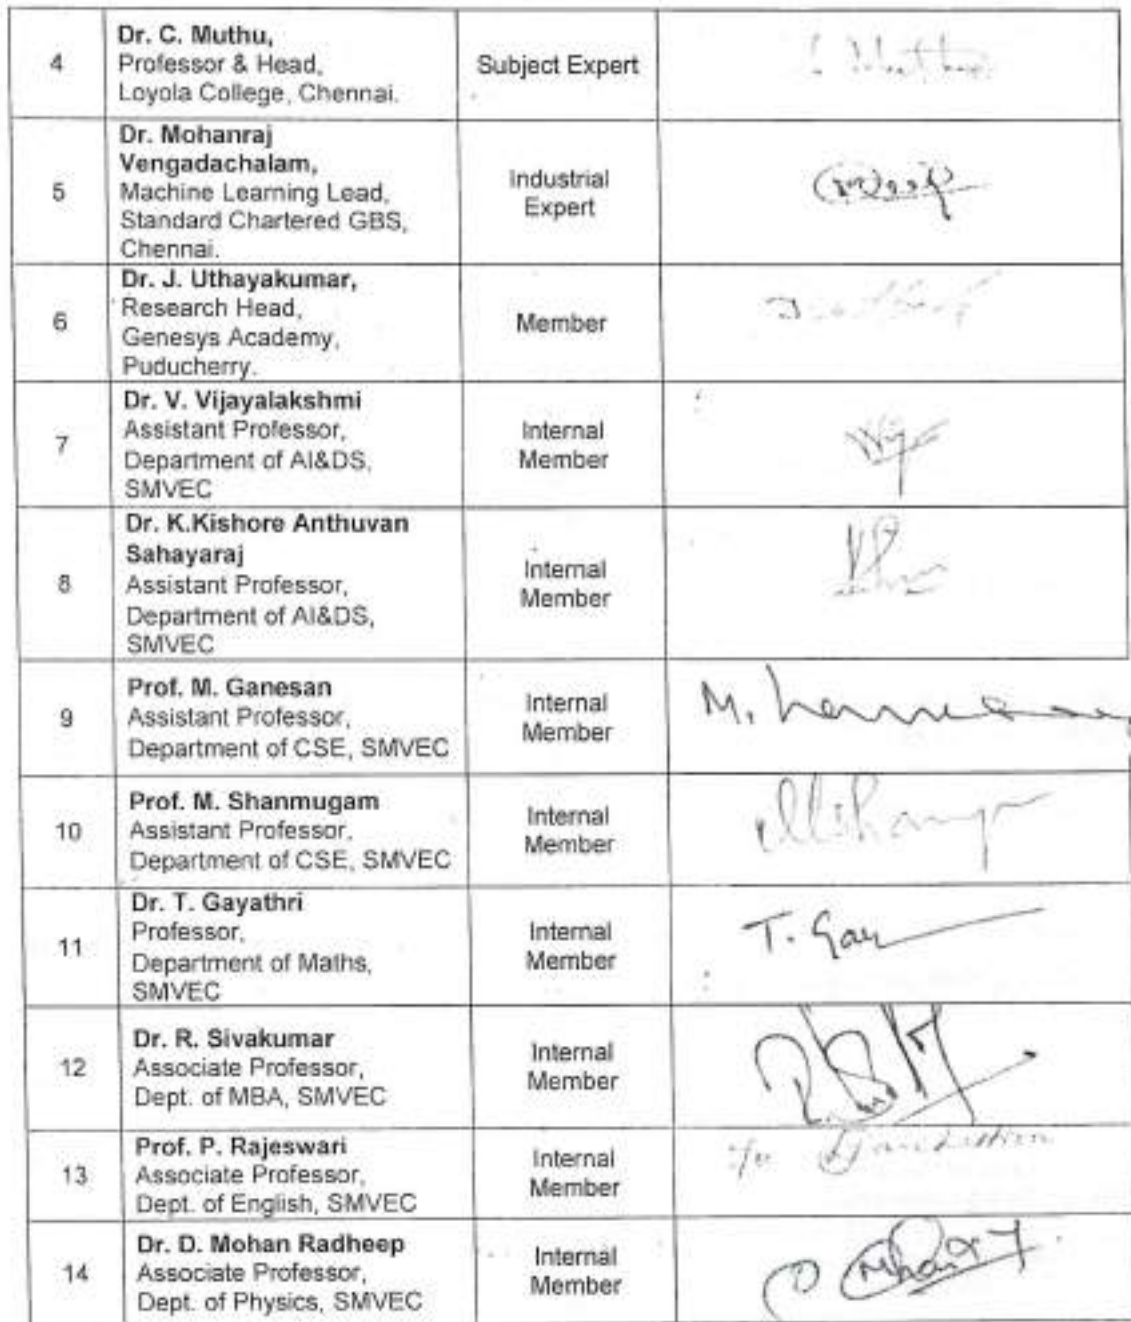 4
Dr. C. Muthu,
Professor & Head,
Loyola College, Chennai.
Subject Expert
5
Dr. Mohanraj
Vengadachalam,
Machine Learning Lead,
Standard Chartered GBS,
Chennai.
Industrial
Expert
6
Dr. J. Uthayakumar,
Research Head,
Genesys Academy,
Puducherry.
Member
7
Dr. V. Vijayalakshmi
Assistant Professor,
Department of AI&DS,
SMVEC
Internal
Member
8
Dr. K.Kishore Anthuvan
Sahayaraj
Assistant Professor,
Department of AI&DS,
SMVEC
Internal
Member
9
Prof. M. Ganesan
Assistant Professor,
Department of CSE, SMVEC
Internal
Member
M.
10
Prof. M. Shanmugam
Assistant Professor,
Department of CSE, SMVEC
Internal
Member
11
Dr. T. Gayathri
Professor,
Department of Maths,
SMVEC
Internal
Member
T. Gay
12
Dr. R. Sivakumar
Associate Professor,
Dept. of MBA, SMVEC
Internal
Member
13
Prof. P. Rajeswari
Associate Professor,
Dept. of English, SMVEC
Internal
Member
14
Dr. D. Mohan Radheep
Associate Professor,
Dept. of Physics, SMVEC
Internal
Member